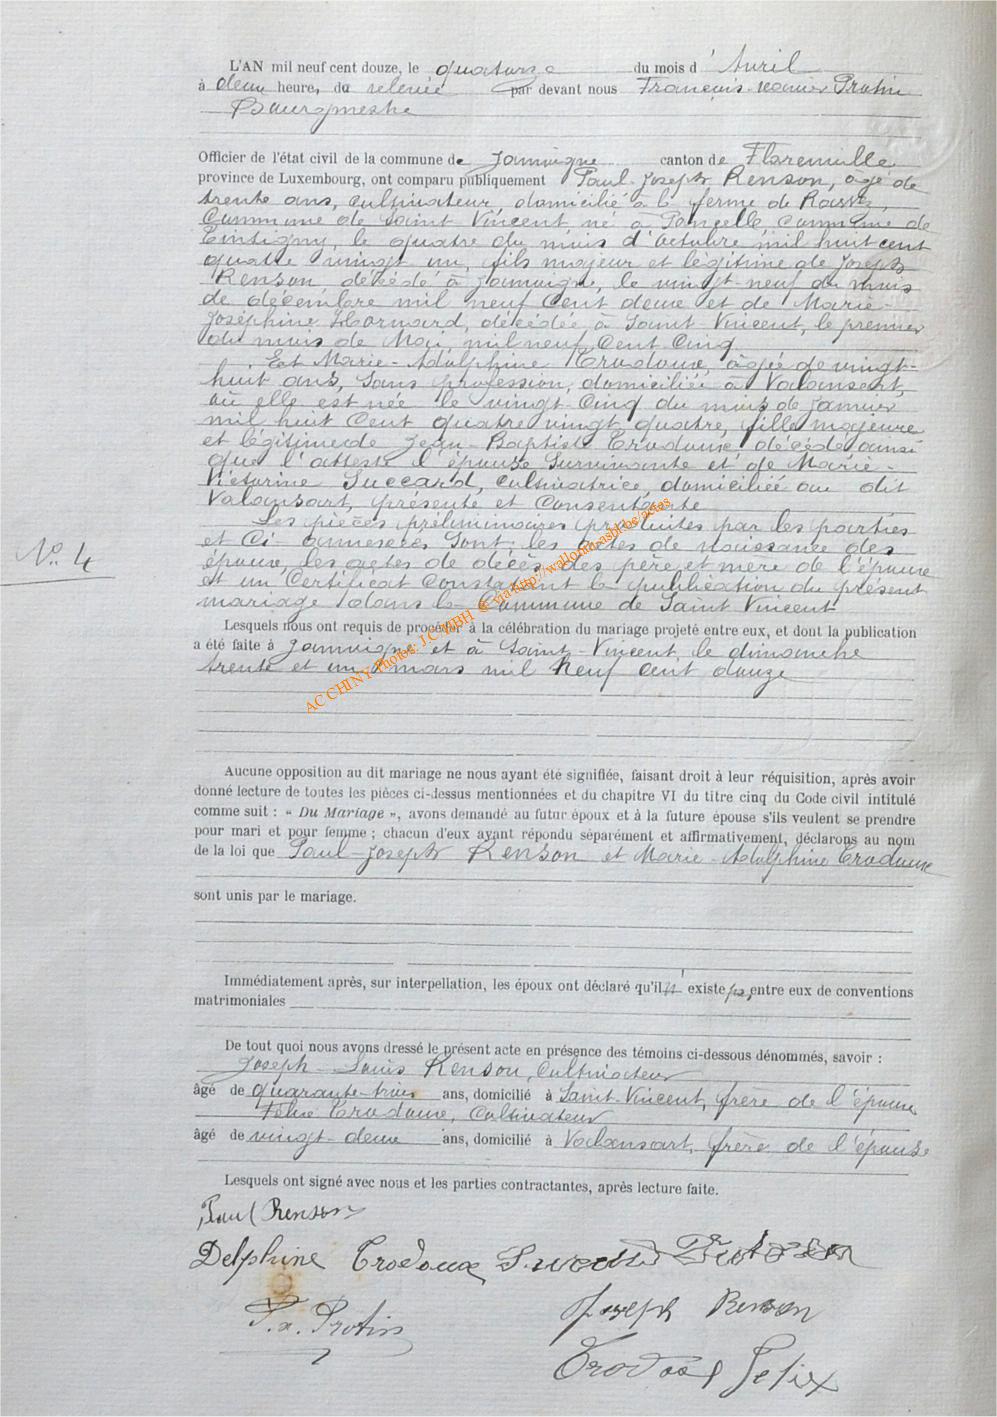 L'AN mil neuf cent douze, le quatorze du mois d'Avril
à deux heure, du relevée par devant nous François-Xavier Protin
Bourgmestre
Officier de l'état civil de la commune de Jamoigne canton de Florenville
province de Luxembourg, ont comparu publiquement Paul-Joseph Renson, âgé de
trente ans, cultivateur, domicilié à la ferme de
Commune de Saint Vincent né à Commune de
Tintigny, le quatre du mois d'octobre mil huit cent
quatre vingt un, fils majeur et légitime de Joseph
Renson décédé à Jamoigne, le vingt-neuf du mois
de décembre mil neuf cent deux et de Marie-
Joséphine décédée, à Saint-Vincent, le premier
du mois de Mai, mil neuf cent cinq
Et Marie-Adolphine Trodoux, âgée de vingt-
huit ans, sans profession, domiciliée à Valansart,
où elle est née le vingt-cinq du mois de janvier
mil huit cent quatre vingt quatre, fille majeure
et légitime de Jean-Baptiste Trodoux décédé ainsi
que l'atteste l'épouse survivante et de Marie-
Victorine Succard, cultivatrice, domiciliée au dit
Valansart, présente et consentante
Les pièces préliminaires produites par les parties
et ci annexées sont: les actes de naissance des
époux, les actes de décès des père et mère de l'époux
et un certificat constatant la publication du présent
mariage dans la Commune de Saint Vincent
N°. 4
Lesquels nous ont requis de procéder à la célébration du mariage projeté entre eux, et dont la publication
a été faite à Jamoigne et à Saint-Vincent le dimanche
trente et un mars mil neuf cent douze
AC CHINY Photos: J.C MBH © via http://wallonia-asbl.be/actes
Aucune opposition au dit mariage ne nous ayant été signifiée, faisant droit à leur réquisition, après avoir
donné lecture de toutes les pièces ci-dessus mentionnées et du chapitre VI du titre cinq du Code civil intitulé
comme suit : « Du Mariage », avons demandé au futur époux et à la future épouse s'ils veulent se prendre
pour mari et pour femme ; chacun d'eux ayant répondu séparément et affirmativement, déclarons au nom
de la loi que Paul-Joseph Renson et Marie-Adolphine Trodoux
sont unis par le mariage.
Immédiatement après, sur interpellation, les époux ont déclaré qu'il n'existe pas, entre eux de conventions
matrimoniales
De tout quoi nous avons dressé le présent acte en présence des témoins ci-dessous dénommés, savoir :
Joseph-Louis Renson, Cultivateur
âgé de quarante-trois ans, domicilié à Saint-Vincent, frère de l'époux
Félix Trodoux, Cultivateur
âgé de vingt-deux ans, domicilié à Valansart, frère de l'épouse
Lesquels ont signé avec nous et les parties contractantes, après lecture faite.
Paul Renson
Delphine Trodoux
F.x. Protin
Joseph Renson
Félix